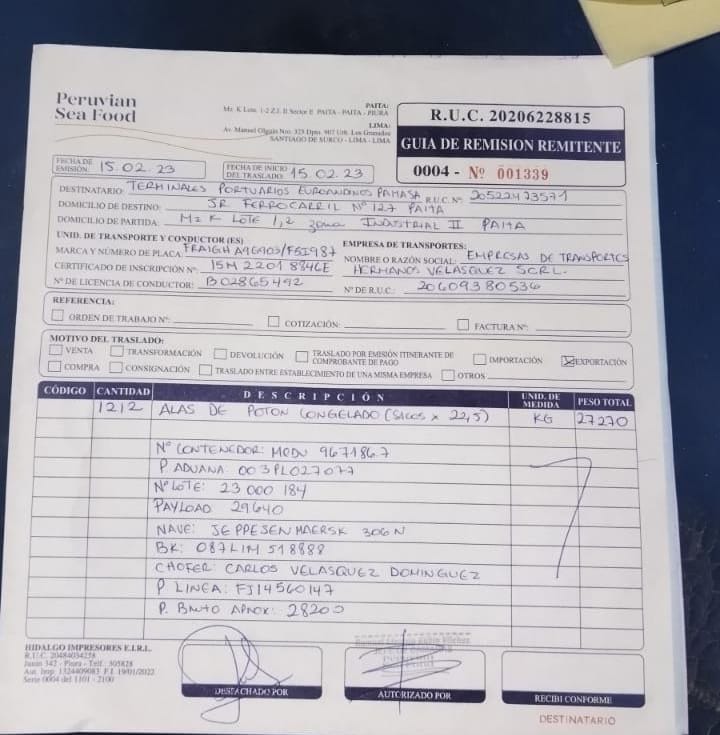 Peruvian
Sea Food
PAITA:
Mz. K Lote. 1-2 Z.I. II Sector E PAITA - PAITA - PIURA
LIMA:
Av. Manuel Olguin Nro. 325 Dpto. 907 Urb. Los Granados
SANTIAGO DE SURCO - LIMA - LIMA
R.U.C. 20206228815
GUIA DE REMISION REMITENTE
0004 - Nº 001339
FECHA DE EMISIÓN: 15.02.23
FECHA DE INICIO DEL TRASLADO: 15.02.23
DESTINATARIO: TERMINALES PORTUARIOS EUROANDINOS PAITA SA R.U.C. Nº: 20522473571
DOMICILIO DE DESTINO: JR FERROCARRIL Nº 127 PAITA
DOMICILIO DE PARTIDA: Mz K LOTE 1,2 zona INDUSTRIAL II PAITA
UNID. DE TRANSPORTE Y CONDUCTOR (ES)
MARCA Y NÚMERO DE PLACA: FRAIGH A96903/F5I987
CERTIFICADO DE INSCRIPCIÓN Nº: 15M 2201 8846E
Nº DE LICENCIA DE CONDUCTOR: B02865492
EMPRESA DE TRANSPORTES:
NOMBRE O RAZÓN SOCIAL: EMPRESAS DE TRANSPORTES
HERMANOS VELASQUEZ SCRL.
Nº DE R.U.C: 20609380536
REFERENCIA:
ORDEN DE TRABAJO Nº:
COTIZACIÓN:
FACTURA Nº:
MOTIVO DEL TRASLADO:
VENTA TRANSFORMACIÓN DEVOLUCIÓN TRASLADO POR EMISIÓN ITINERANTE DE COMPROBANTE DE PAGO IMPORTACIÓN EXPORTACIÓN
COMPRA CONSIGNACIÓN TRASLADO ENTRE ESTABLECIMIENTO DE UNA MISMA EMPRESA OTROS
CÓDIGO CANTIDAD DESCRIPCIÓN UNID. DE MEDIDA PESO TOTAL
1212 ALAS DE POTON CONGELADO (SACOS x 22,5) KG 27270
Nº CONTENEDOR: MEDU 967186.7
P ADUANA: 003PL027077
Nº LOTE: 23 000 184
PAYLOAD: 29.640
NAVE: JEPPESEN MAERSK 306N
BK: 087LIM 518888
CHOFER: CARLOS VELASQUEZ DOMINGUEZ
P LINEA: FJ14560147
P. BRUTO APROX: 28200
HIDALGO IMPRESORES E.I.R.L.
R.U.C. 20484034258
Junin 342 - Piura - Telf. 305828
Aut. Imp. 1324409083 F.I. 19/01/2022
Serie 0004 del 1101 - 2100
DESPACHADO POR
AUTORIZADO POR
RECIBI CONFORME
DESTINATARIO